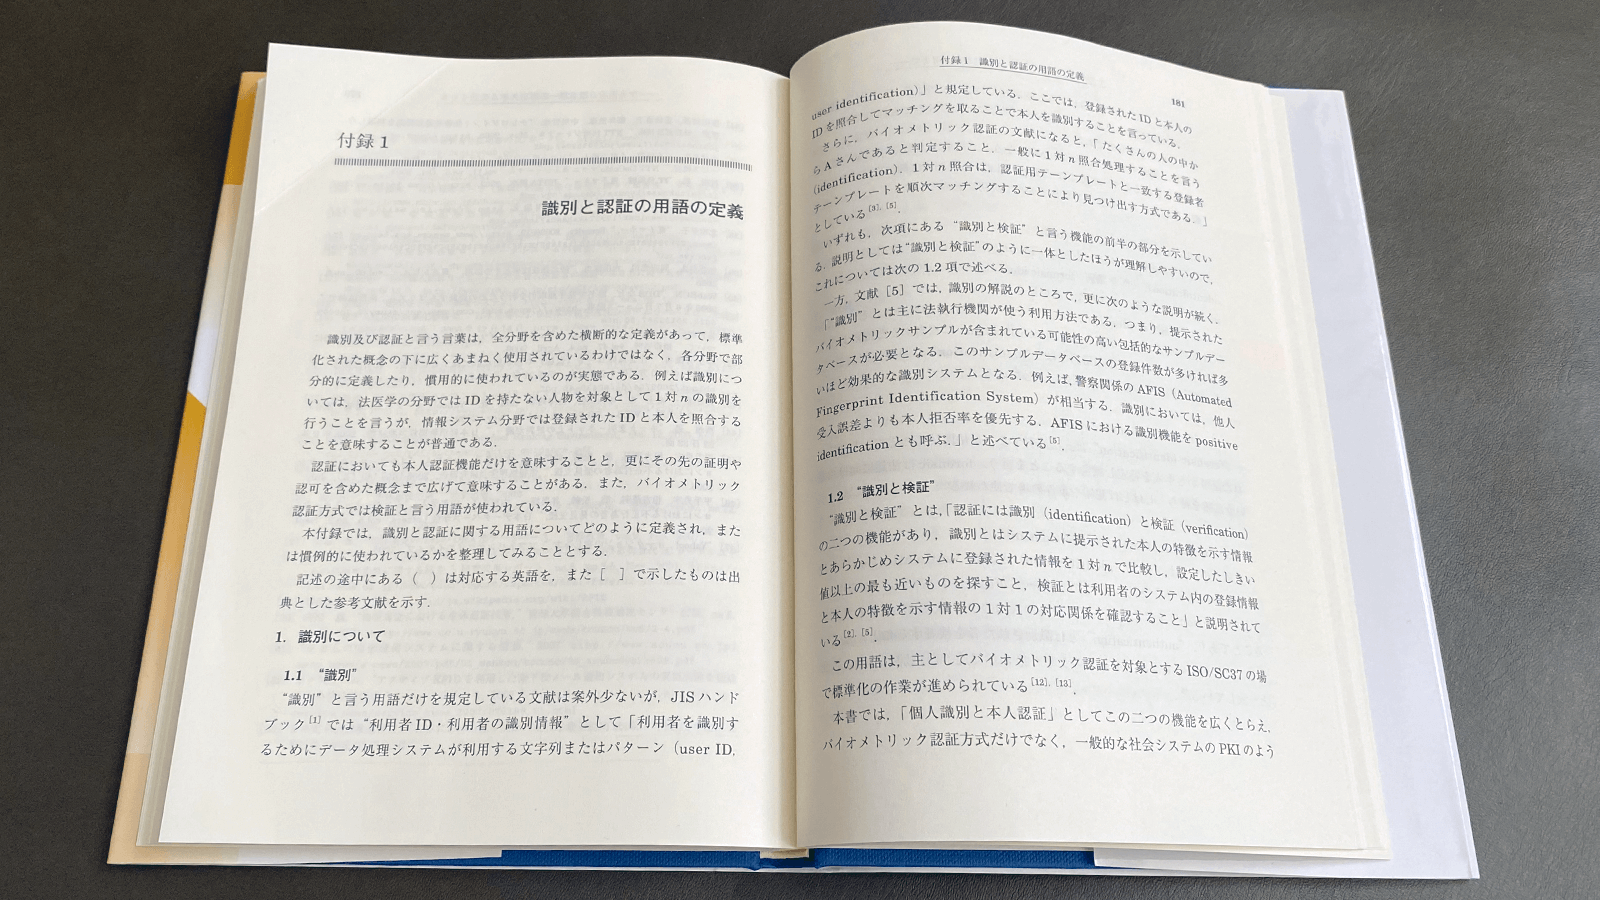 付録 1
識別と認証の用語の定義
識別及び認証と言う言葉は，全分野を含めた横断的な定義があって，標準
化された概念の下に広くあまねく使用されているわけではなく，各分野で部
分的に定義したり，慣用的に使われているのが実態である．例えば識別につ
いては，法医学の分野では ID を持たない人物を対象として 1 対 n の識別を
行うことを言うが，情報システム分野では登録された ID と本人を照合する
ことを意味することが普通である．
認証においても本人認証機能だけを意味することと，更にその先の証明や
認可を含めた概念まで広げて意味することがある．また，バイオメトリック
認証方式では検証と言う用語が使われている．
本付録では，識別と認証に関する用語についてどのように定義され，また
は慣例的に使われているかを整理してみることとする．
記述の途中にある（　）は対応する英語を，また［　］で示したものは出
典とした参考文献を示す．
1. 識別について
1.1 “識別”
“識別” と言う用語だけを規定している文献は案外少ないが，JIS ハンド
ブック[1] では “利用者 ID・利用者の識別情報” として「利用者を識別す
るためにデータ処理システムが利用する文字列またはパターン（user ID,
付録 1　識別と認証の用語の定義
181
user identification）」と規定している．ここでは，登録された ID と本人の
ID を照合してマッチングを取ることで本人を識別することを言っている．
さらに，バイオメトリック認証の文献になると，「たくさんの人の中か
ら A さんであると判定すること．一般に 1 対 n 照合処理することを言う
（identification）．1 対 n 照合は，認証用テーンプレートと一致する登録者
テーンプレートを順次マッチングすることにより見つけ出す方式である．」
としている[3], [5]．
いずれも，次項にある “識別と検証” と言う機能の前半の部分を示してい
る．説明としては“識別と検証”のように一体としたほうが理解しやすいので，
これについては次の 1.2 項で述べる．
一方，文献［5］では，識別の解説のところで，更に次のような説明が続く．
「“識別” とは主に法執行機関が使う利用方法である．つまり，提示された
バイオメトリックサンプルが含まれている可能性の高い包括的なサンプルデー
タベースが必要となる．このサンプルデータベースの登録件数が多ければ多
いほど効果的な識別システムとなる．例えば，警察関係の AFIS（Automated
Fingerprint Identification System）が相当する．識別においては，他人
受入誤差よりも本人拒否率を優先する．AFIS における識別機能を positive
identification とも呼ぶ．」と述べている[5]．
1.2 “識別と検証”
“識別と検証” とは，「認証には識別（identification）と検証（verification）
の二つの機能があり，識別とはシステムに提示された本人の特徴を示す情報
とあらかじめシステムに登録された情報を 1 対 n で比較し，設定したしきい
値以上の最も近いものを探すこと，検証とは利用者のシステム内の登録情報
と本人の特徴を示す情報の 1 対 1 の対応関係を確認すること」と説明されて
いる[2], [5]．
この用語は，主としてバイオメトリック認証を対象とする ISO/SC37 の場
で標準化の作業が進められている[12], [13]．
本書では，「個人識別と本人認証」としてこの二つの機能を広くとらえ，
バイオメトリック認証方式だけでなく，一般的な社会システムの PKI のよう